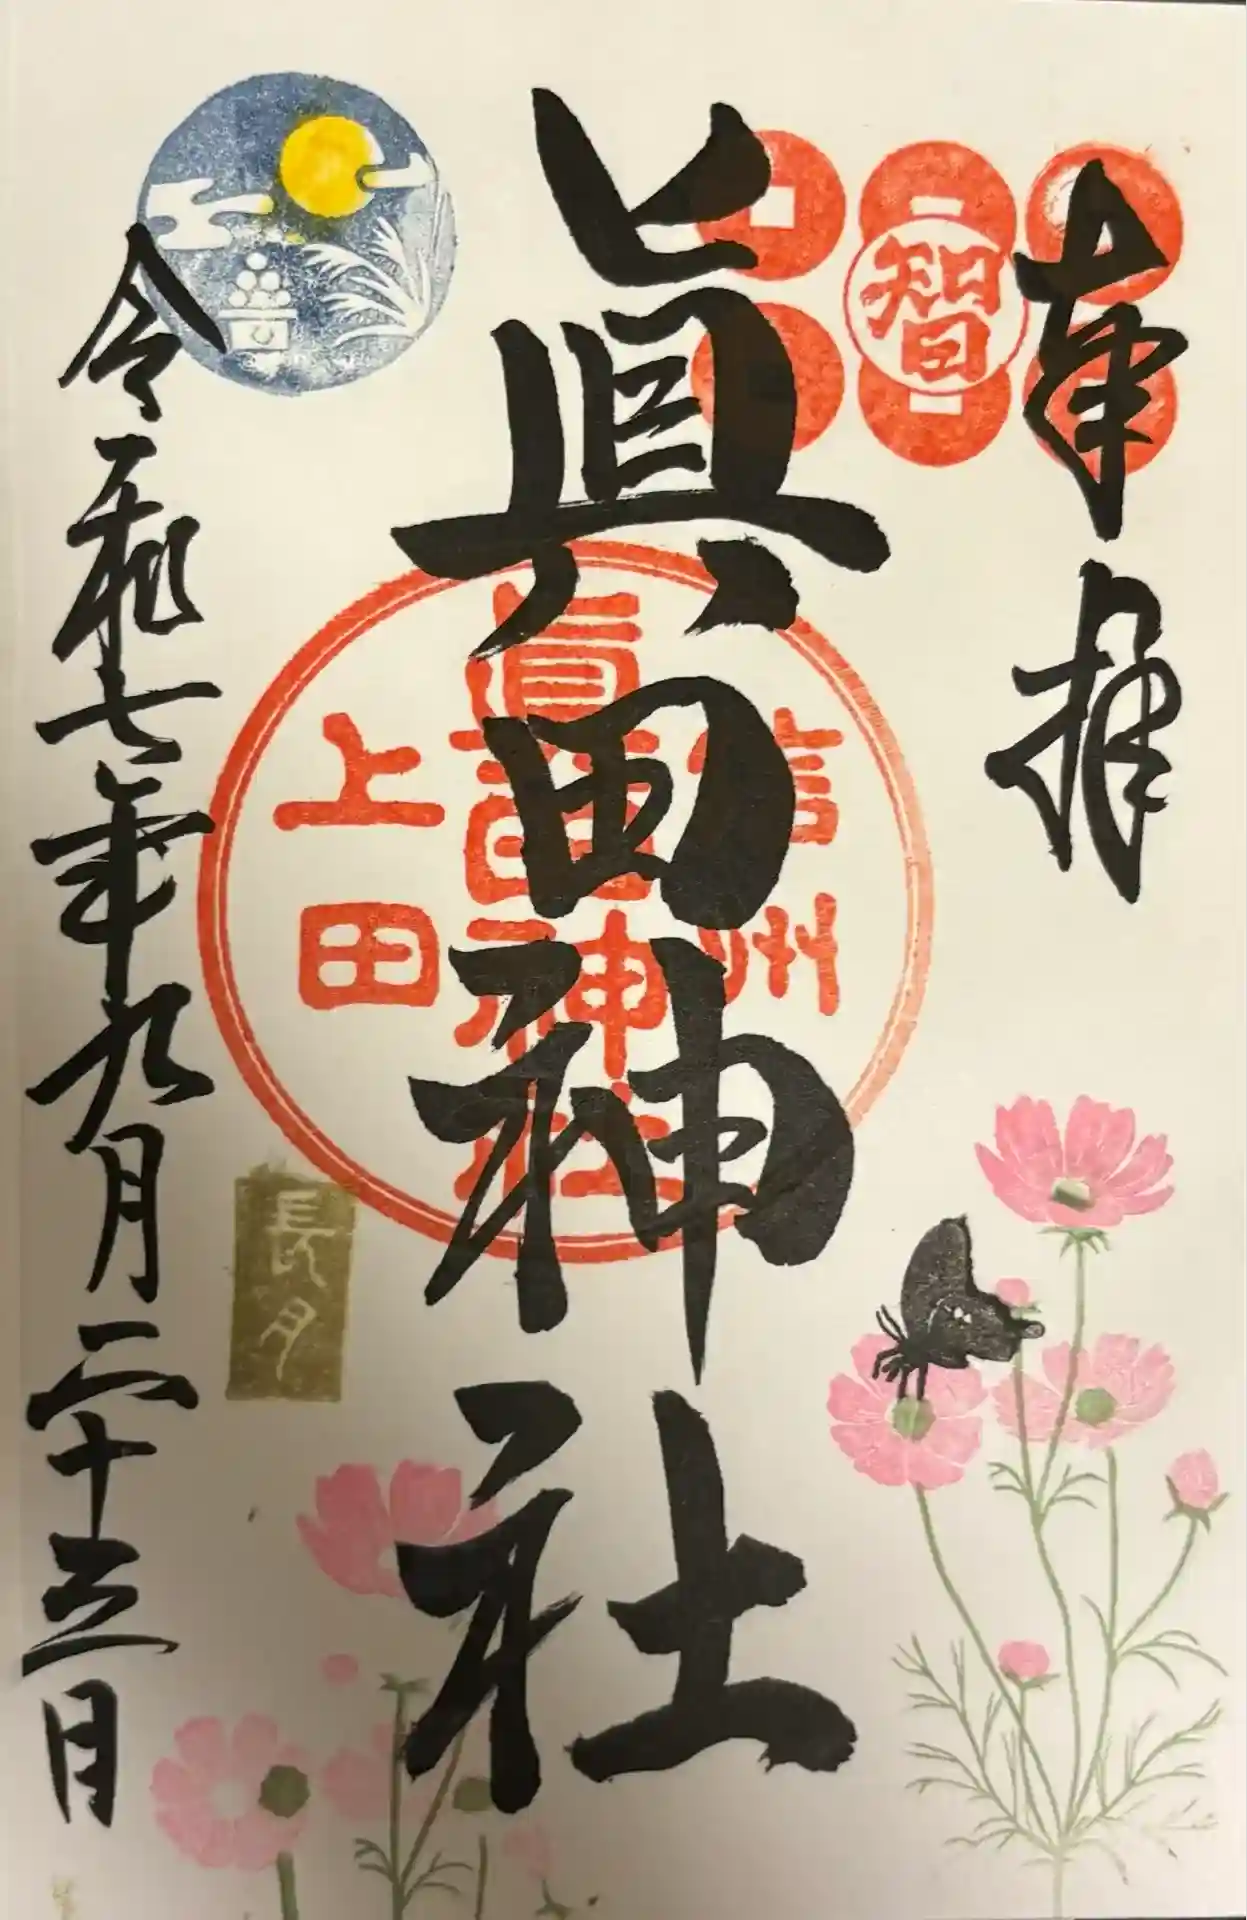 奉拝
智
眞田神社
信州
眞田神社
上田
長月
令和七年九月二十三日